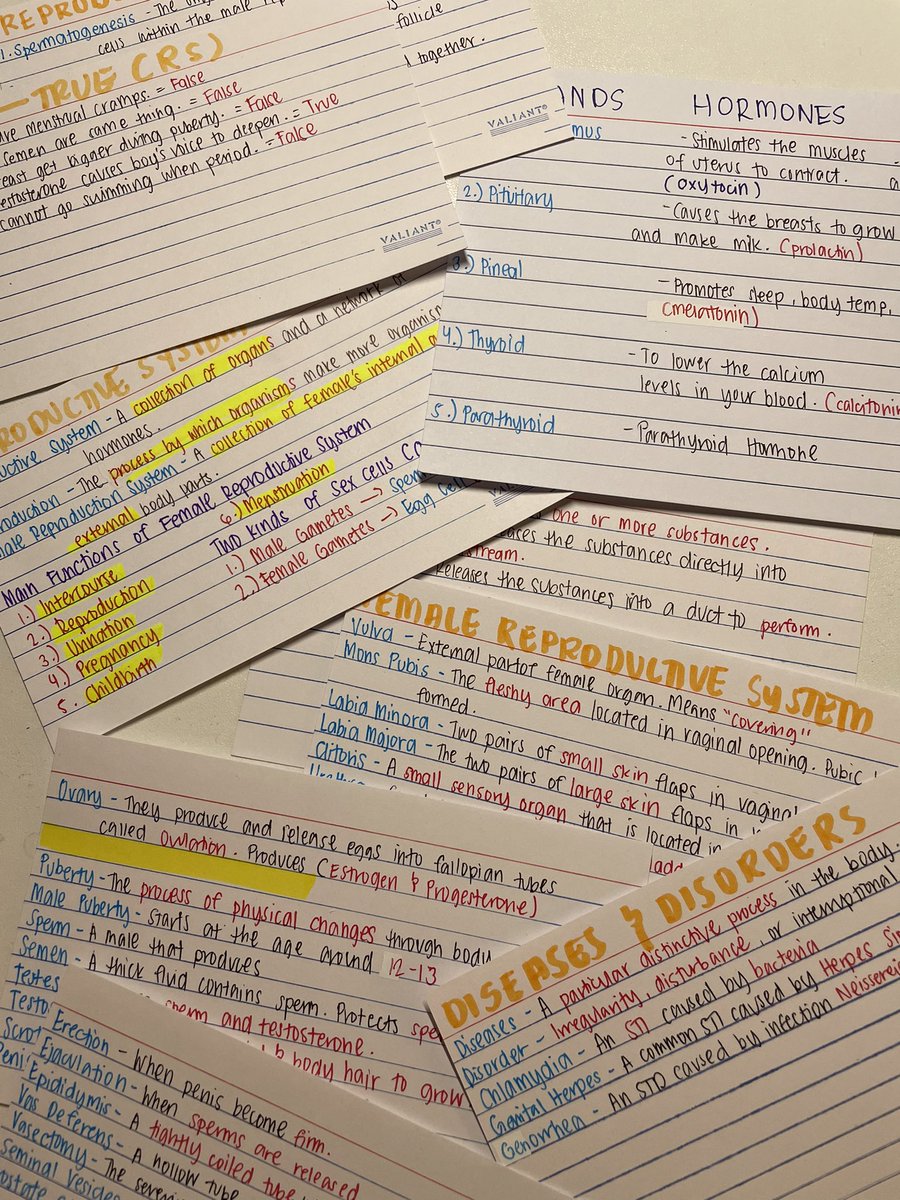 REPRODU
1. Spermatogenesis - The
cells within the male
TRUE (RS)
menstrual cramps. = False
semen are came thing. = False
east get bigner during puberty. = False
estosterone causes boy's voice to deepen. = True
cannot go swimming when period. = False
VALIANT®
follicle
together.
VALIANT®
NDS HORMONES
mus - Stimulates the muscles
of uterus to contract.
(oxytocin)
2.) Pituitary - Causes the breasts to grow
and make milk. (prolactin)
3.) Pineal - Promotes sleep, body temp,
(melatonin)
4.) Thyroid - To lower the calcium
levels in your blood. (calcitonin
5.) Parathyroid - Parathyroid Hormone
RODUCTIVE SYSTEM
uctive System - A collection of organs and a network of
hormones.
oduction - The process by which organisms make more organism
ale Reproduction System - A collection of female's internal
external body parts.
Main Functions of Female Reproductive System
1.) Intercourse
2.) Reproduction
3.) Urination
4.) Pregnancy
5. Childbirth
6.) Menstruation
Two kinds of sex cells
1.) Male Gametes → Sperm
2.) Female Gametes → Egg Cell
one or more substances.
ases the substances directly into
stream.
Releases the substances into a duct to perform.
FEMALE REPRODUCTIVE SYSTEM
Vulva - External part of female organ. Means "covering"
Mons Pubis - The fleshy area located in vaginal opening. Pubic
formed.
Labia Minora - Two pairs of small skin flaps in vaginal
Labia Majora - The two pairs of large skin flaps in
Clitoris - A small sensory organ that is located in
Urethra
Ovary - They produce and release eggs into fallopian tubes
called Ovulation. Produces (Estrogen & Progesterone)
Puberty - The process of physical changes through body
Male Puberty - Starts at the age around 12-13
Sperm - A male that produces
Semen - A thick fluid contains sperm. Protects
Testes
sperm and testosterone.
Testo
& body hair to grow
Scrot
Peni
Erection - When penis become firm.
Ejaculation - When sperms are released
Epididymis - A tightly coiled tube
Vas Deferens - A hollow tube
Vasectomy - The
Seminal Vesicles
ostate
DISEASES & DISORDERS
Diseases - A particular distinctive process in the body.
Disorder - Irregularity, disturbance, or interruptional
Chlamydia - An STI caused by bacteria
Genital Herpes - A common STI caused by Herpes Sim
Genorrhea - An STD caused by infection Neisseria